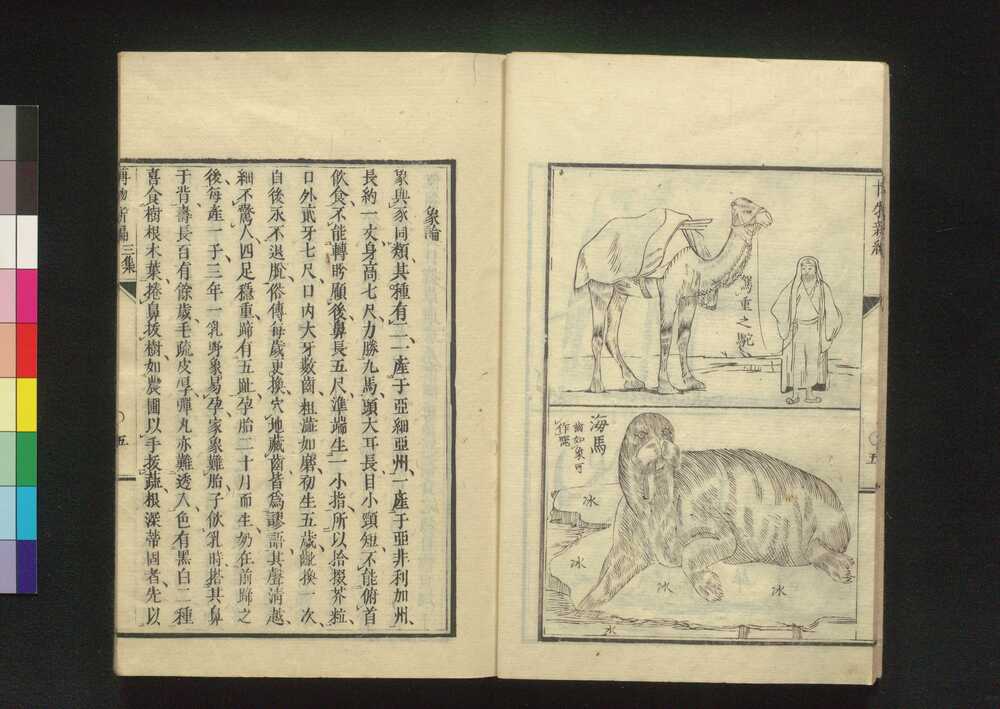 駕重之駝
海馬
齒如象可
作器
冰
冰
冰
冰
〇五
象論
象與豕同類、其種有二、一產于亞細亞州、一產于亞非利加州、
長約一丈身高七尺力勝九馬、頭大耳長目小頸短不能俯首
飲食、不能轉盻顧後鼻長五尺準端生一小指所以拾掇芥粒、
口外貳牙七尺口內大牙數齒粗澁如磨、初生五歲齔換一次、
自後永不退脫、俗傳每歲更換穴地藏齒皆為謬語其聲清越、
細不驚人、四足穩重、蹄有五趾、孕胎二十月而生奶在前蹄之
後、每產一子三年一乳野象易孕家象難胎子飲乳時搭其鼻
于背、壽長百有餘歲毛疏皮厚彈丸亦難透入色有黑白二種
喜食樹根木葉捲鼻拔樹如農圃以手拔蔬根深蒂固者先以
博物新編三集
〇五